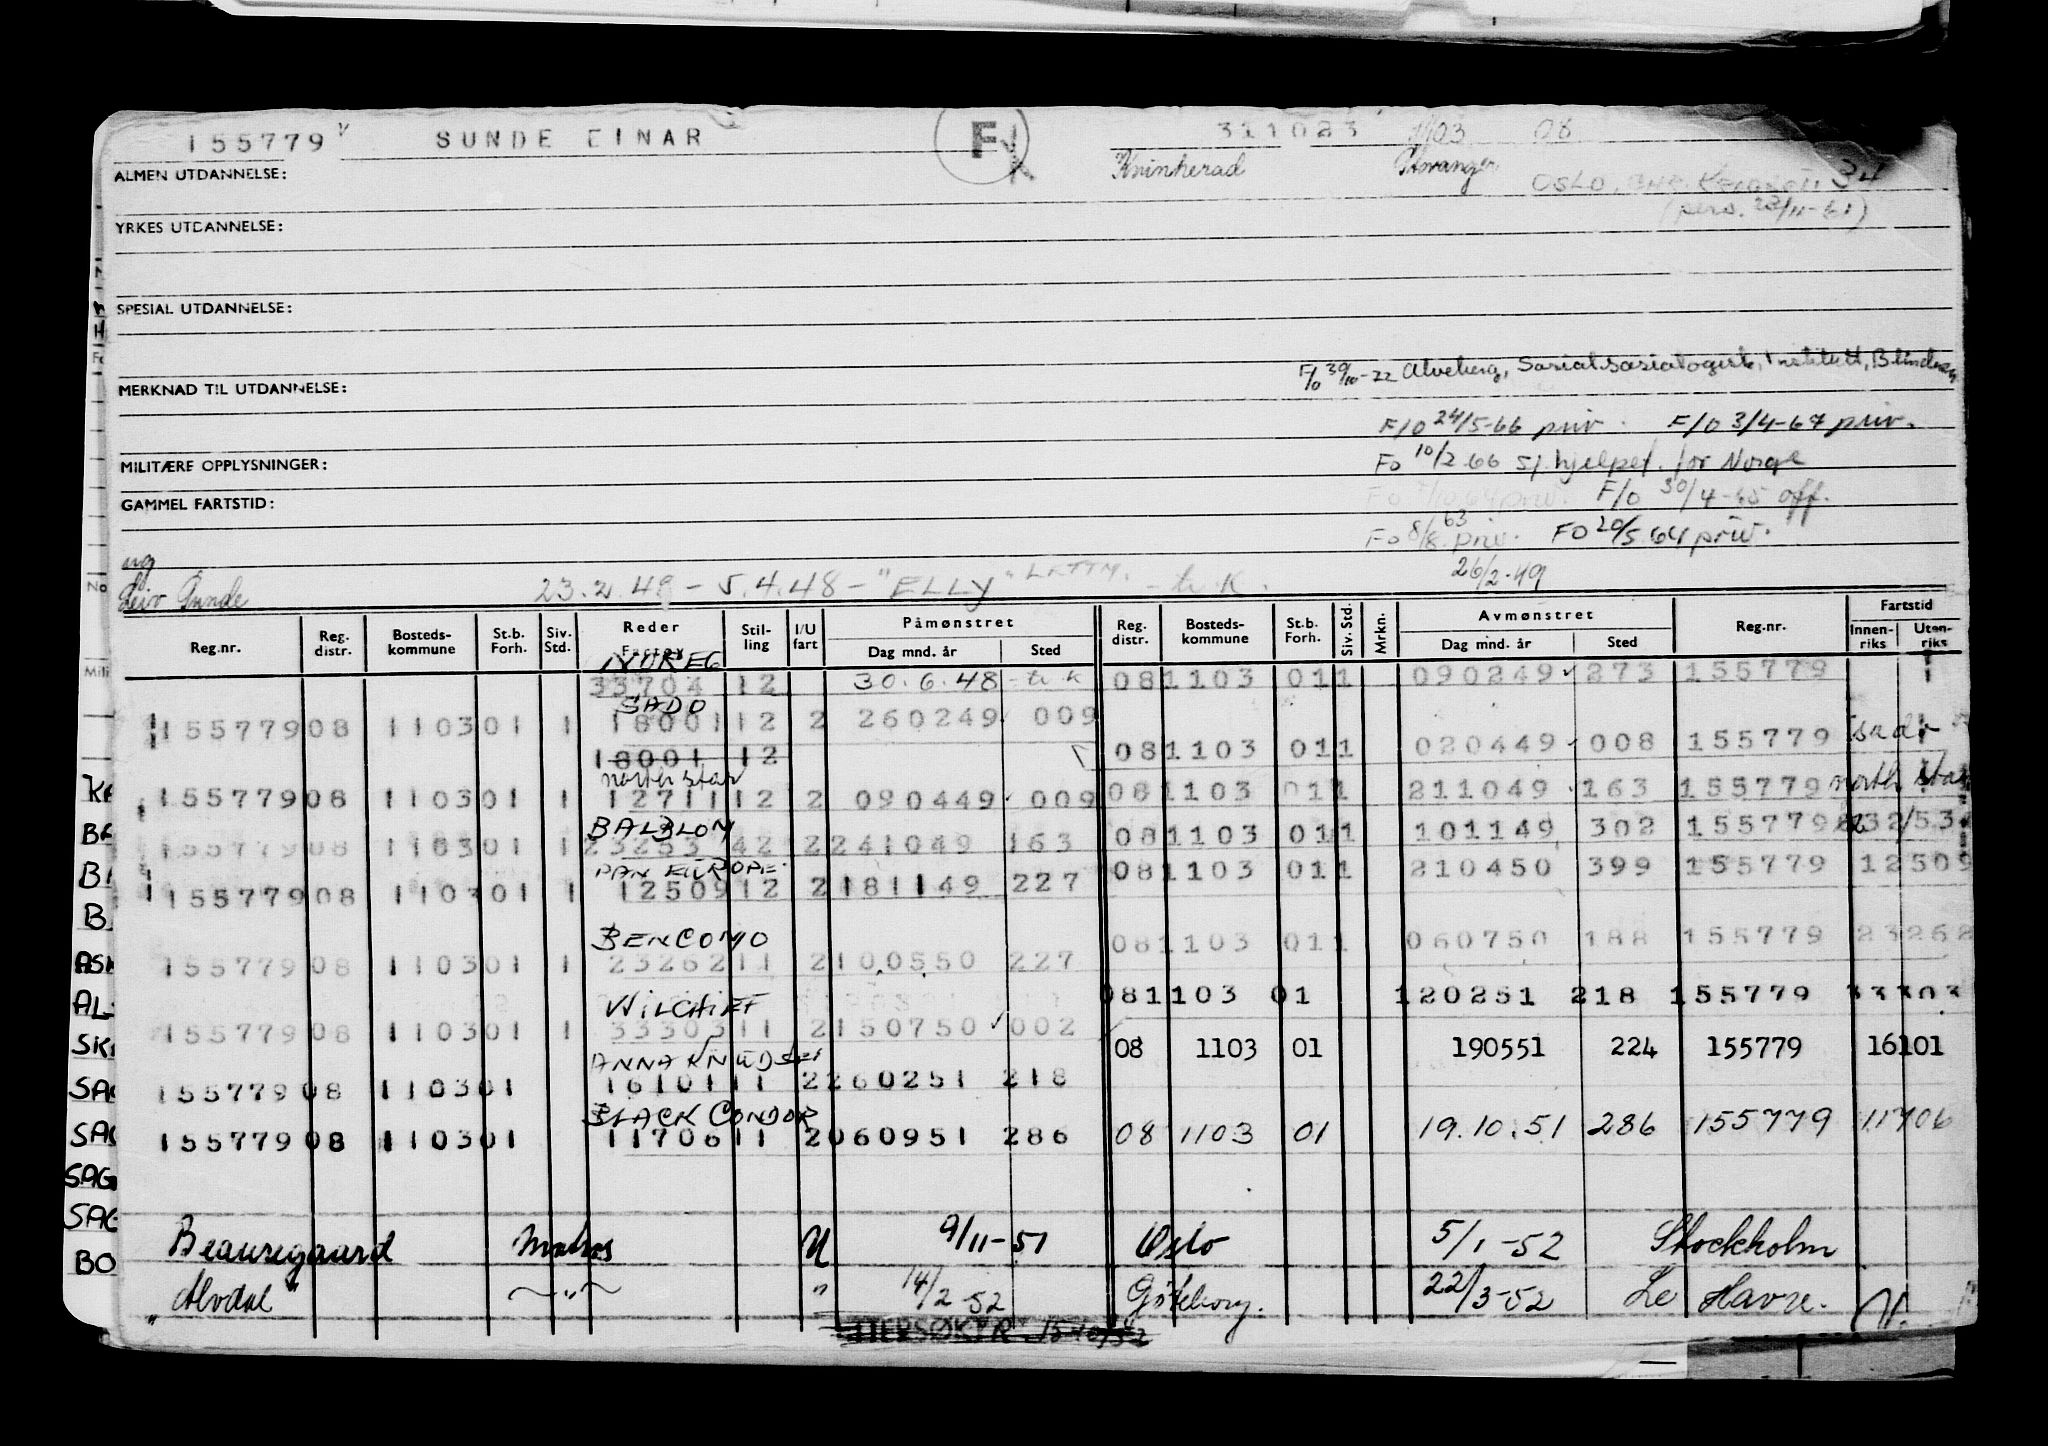 155779 SUNDE EINAR F 311023 1103 08
ALMEN UTDANNELSE: Kvinherad Stavanger OSLO 34
(pers. 23/11-61)
YRKES UTDANNELSE:
SPESIAL UTDANNELSE:
F/o 30/10-72 Alveberg, Institutt, Blindern
MERKNAD TIL UTDANNELSE:
F/O 24/5-66 priv. F/O 3/4-67 priv.
MILITÆRE OPPLYSNINGER: Fo 10/2 66 Sj.hjelpef. for Norge
GAMMEL FARTSTID: F/o 30/4-65 off.
Fo 8/8 63 priv. FO 20/5.64 priv.
ug 26/2-49
Leiv Sunde 23.2.48 - 5.4.48 - "ELLY" LETTM. - u.k.
Reg.nr. Reg. distr. Bosteds- kommune St.b. Forh. Siv. Std. Reder Fartøy Stil- ling I/U fart Påmønstret Dag mnd. år Sted Reg. distr. Bosteds- kommune St.b. Forh. Siv. Std. Mrkn. Avmønstret Dag mnd. år Sted Reg.nr. Fartstid Innen- riks Uten- riks
NOREG
33704 12 30.6.48 - u.k 08 1103 01 1 090249 273 155779
SADO
155779 08 1103 01 1 18001 12 2 260249 009
18001 12 08 1103 01 1 020449 008 155779 Sado
North Star
155779 08 1103 01 1 12711 12 2 090449 009 08 1103 01 1 211049 163 155779 North Star
BALBLOM
155779 08 1103 01 1 23253 42 2 241049 163 08 1103 01 1 101149 302 155779
PAN EUROPE
155779 08 1103 01 1 12509 12 2 181149 227 08 1103 01 1 210450 399 155779 12509
BENCOMO
155779 08 1103 01 1 23262 11 2 100550 227 08 1103 01 1 060750 188 155779 23262
WILCHIEF
155779 08 1103 01 1 33303 11 2 150750 002 08 1103 01 120251 218 155779 33303
ANNA KNUDSEN
155779 08 1103 01 16101 11 2 260251 218 08 1103 01 190551 224 155779 16101
BLACK CONDOR
155779 08 1103 01 11706 11 2 060951 286 08 1103 01 19.10.51 286 155779 11706
Beauregaard Matros U 9/11-51 Oslo 5/1-52 Stockholm
"Alvdal" -"- " 14/2 52 Göteborg. 22/3-52 Le Havre.
ETTERSØKT R